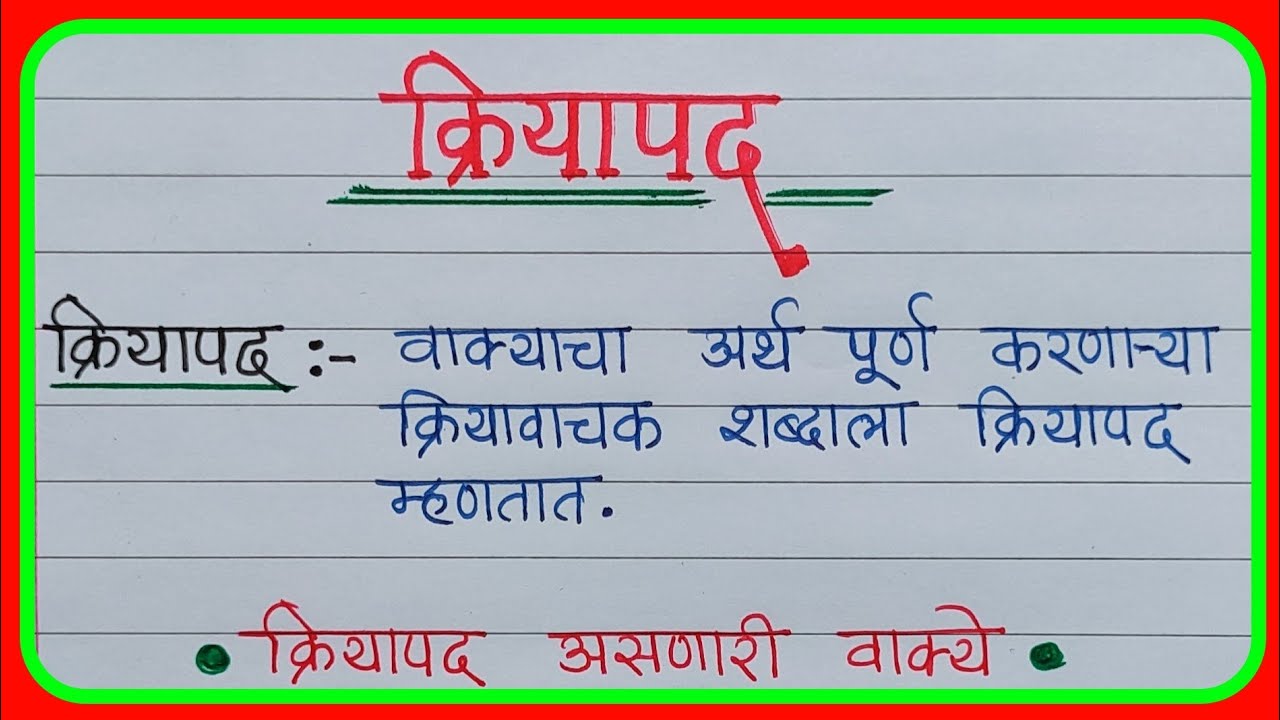 क्रियापद
क्रियापद :- वाक्याचा अर्थ पूर्ण करणाऱ्या
क्रियावाचक शब्दाला क्रियापद
म्हणतात.
• क्रियापद असणारी वाक्ये •